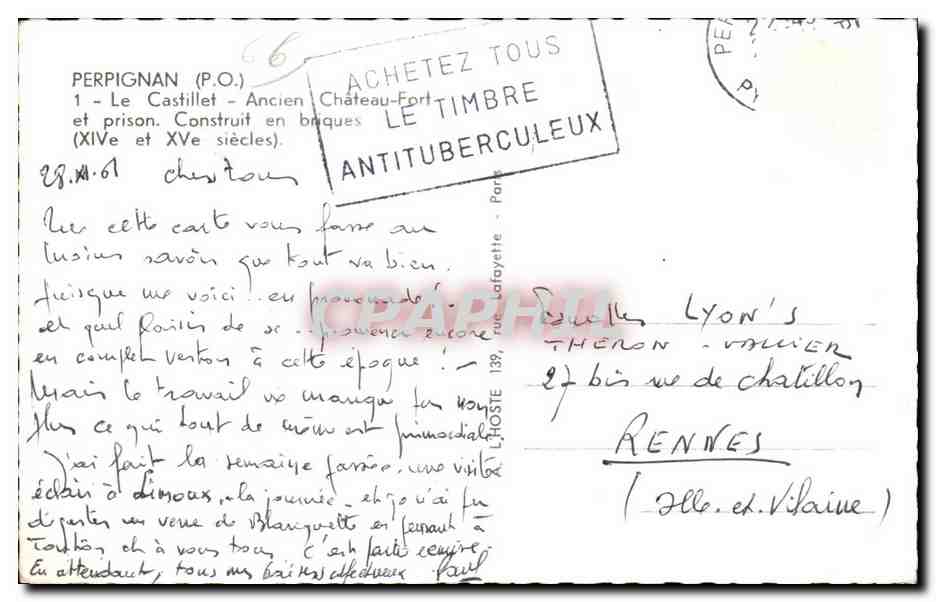 66
PERPIGNAN (P.O.)
1 - Le Castillet - Ancien Château-Fort
et prison. Construit en briques
(XIVe et XVe siècles).
ACHETEZ TOUS
LE TIMBRE
ANTITUBERCULEUX
PE
28.XI.61 chers tous
Que cette carte vous fasse au
moins savoir que tout va bien.
puisque me voici .. en promenade !
et quel plaisir de se .. promener encore
en complet veston à cette époque ! -
Mais le travail ne manque pas non
plus ce qui tout de même est primordiale
J'ai fait la semaine passée. une visite
éclair à Limoux, la journée. et j'ai pu
déguster un verre de Blanquette en pensant à
et à vous tous c'est partie remise.
En attendant, tous mes baisers affectueux Paul
L'HOSTE 139, rue Lafayette - Paris
CPAPHIL
LYON'S
THERON - VALLIER
27 bis rue de Chatillon
RENNES
(Ille. et. Vilaine)